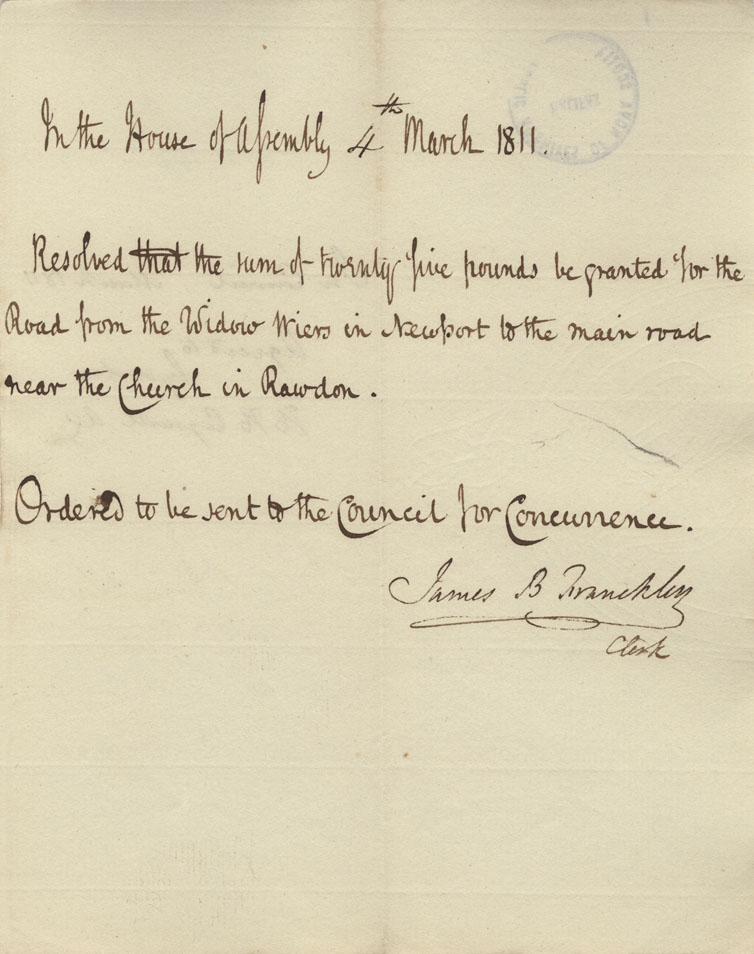 In the House of Assembly 4th March 1811.
Resolved that the sum of twenty five pounds be granted for the
Road from the Widow Wiers in Newport to the main road
near the Church in Rawdon.
Ordered to be sent to the Council for Concurrence.
James B Franckley
Clerk